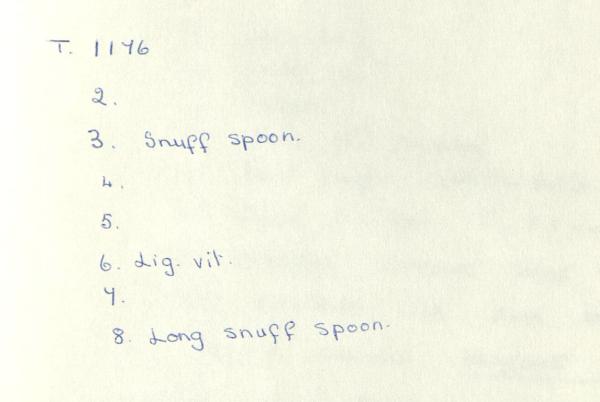 T. 1176
2.
3. Snuff spoon.
4.
5.
6. Lig. vit.
7.
8. Long snuff spoon.